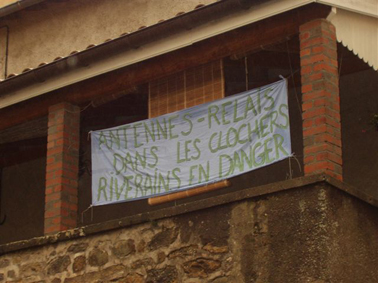 ANTENNES-RELAIS
DANS LES CLOCHERS
RIVERAINS EN DANGER